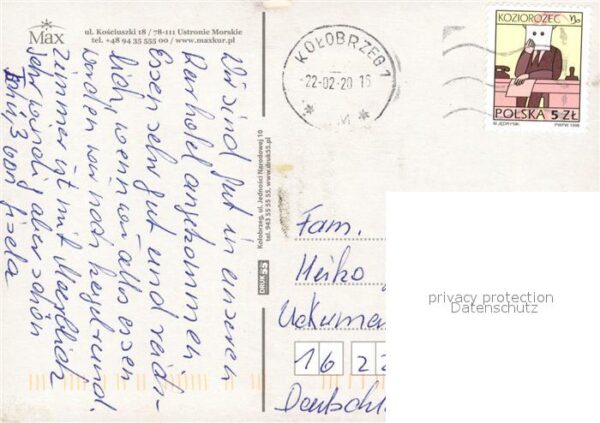 Max
ul. Kościuszki 18 / 78-111 Ustronie Morskie
tel. +48 94 35 555 00 / www.maxkur.pl
Wir sind gut in unseren
Kurhotel angekommen
Essen sehr gut und reich-
lich, wenn wir alls essen
würden wär noch kugelrund.
Zimmer ist mit Meerblick
sehr windig aber schön
Gruß, Gisela
Kołobrzeg, ul. Jedności Narodowej 10
tel. 943 55 55 55, www.druk55.pl
DRUK 55
KOŁOBRZEG 1
-22-02-20 15
KOZIOROŻEC
POLSKA 5 ZŁ
M. JĘDRYSIK
PWPW 1996
Fam.
Heiko
16 22
Deutschl
privacy protection
Datenschutz